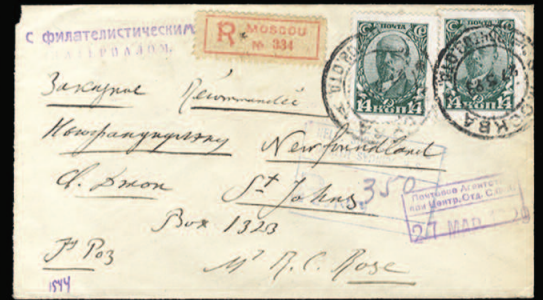 с филателистическим
материалом.
R MOSCOU
№ 334
ПОЧТА
14 КОП 14
ПОЧТА
14 КОП 14
МОСКВА
Заказное Recommandée
Ньюфаундленд Newfoundland
Св. Джон St Johns
350
Box 1323
Почтовое Агентство
при Центр. Отд. С.Ф.А.
27 МАЯ
Р. Роз Mr R. C. Rose
1844